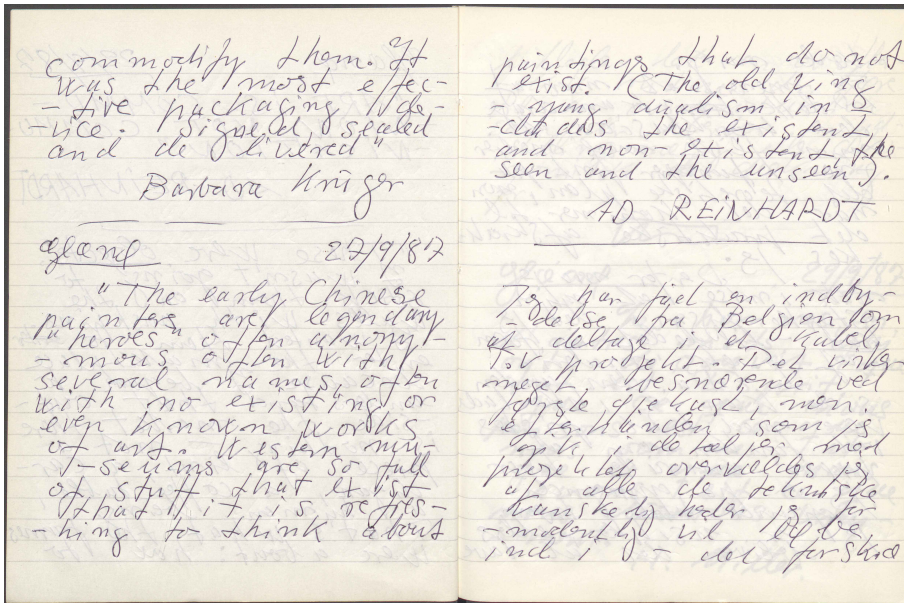 commodify them. It
was the most effec-
-tive packaging de-
-vice. Signed, sealed
and delivered"
Barbara Krüger
Øland 27/9/87
"The early Chinese
painters are legendary
"heroes" often anony-
-mous often with
several names, often
with no existing or
even known works
of art. Western mu-
-seums are so full
of stuff that exist
that it is refres-
-hing to think about
paintings that do not
exist. (The old ying
-yang dualism in-
-cludes the existent
and non-existent, the
seen and the unseen).
AD REINHARDT
Jeg har fået en indby-
-delse fra Belgien om
at deltage i et Kabel
T.V projekt. Det virker
meget besnærende ved
første øjekast, men
efterhånden som jeg
gik i detaljer med
projektet overvældes jeg
af alle de tekniske
vanskeligheder jeg for-
-modentlig vil løbe
ind i - det